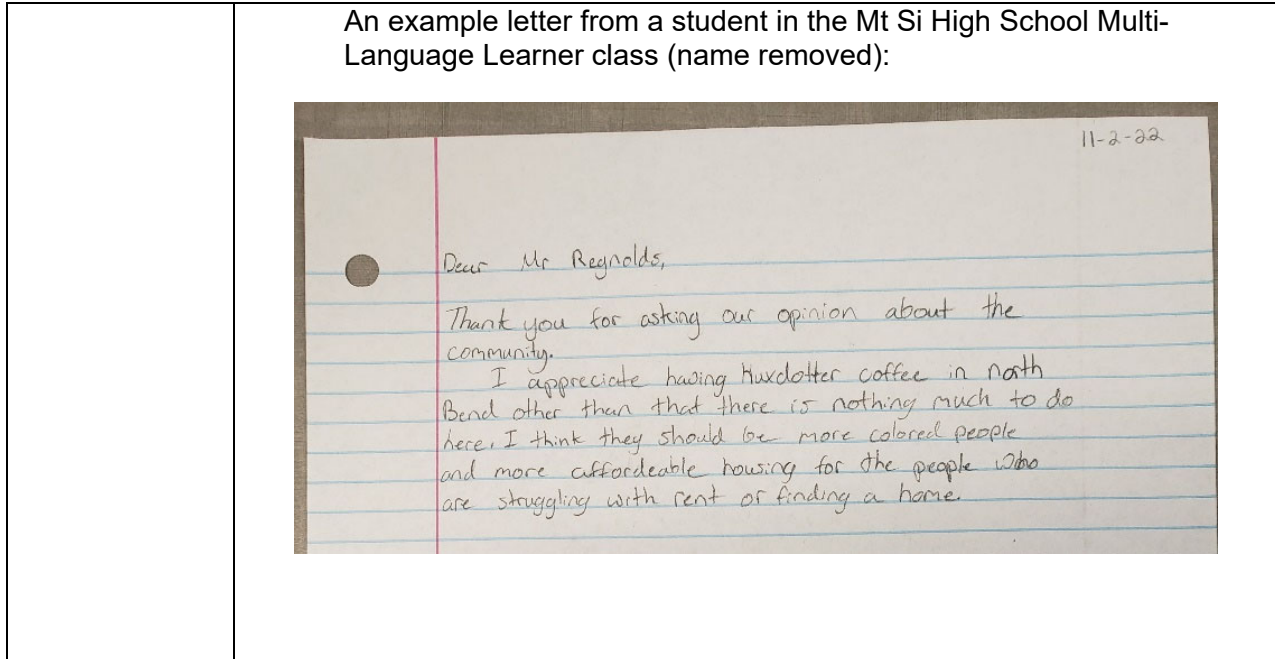 An example letter from a student in the Mt Si High School Multi-
Language Learner class (name removed):
11-2-22
Dear Mr Reynolds,
Thank you for asking our opinion about the
community.
I appreciate having Huxdotter coffee in north
Bend other than that there is nothing much to do
here. I think they should be more colored people
and more affordeable housing for the people who
are struggling with rent or finding a home.